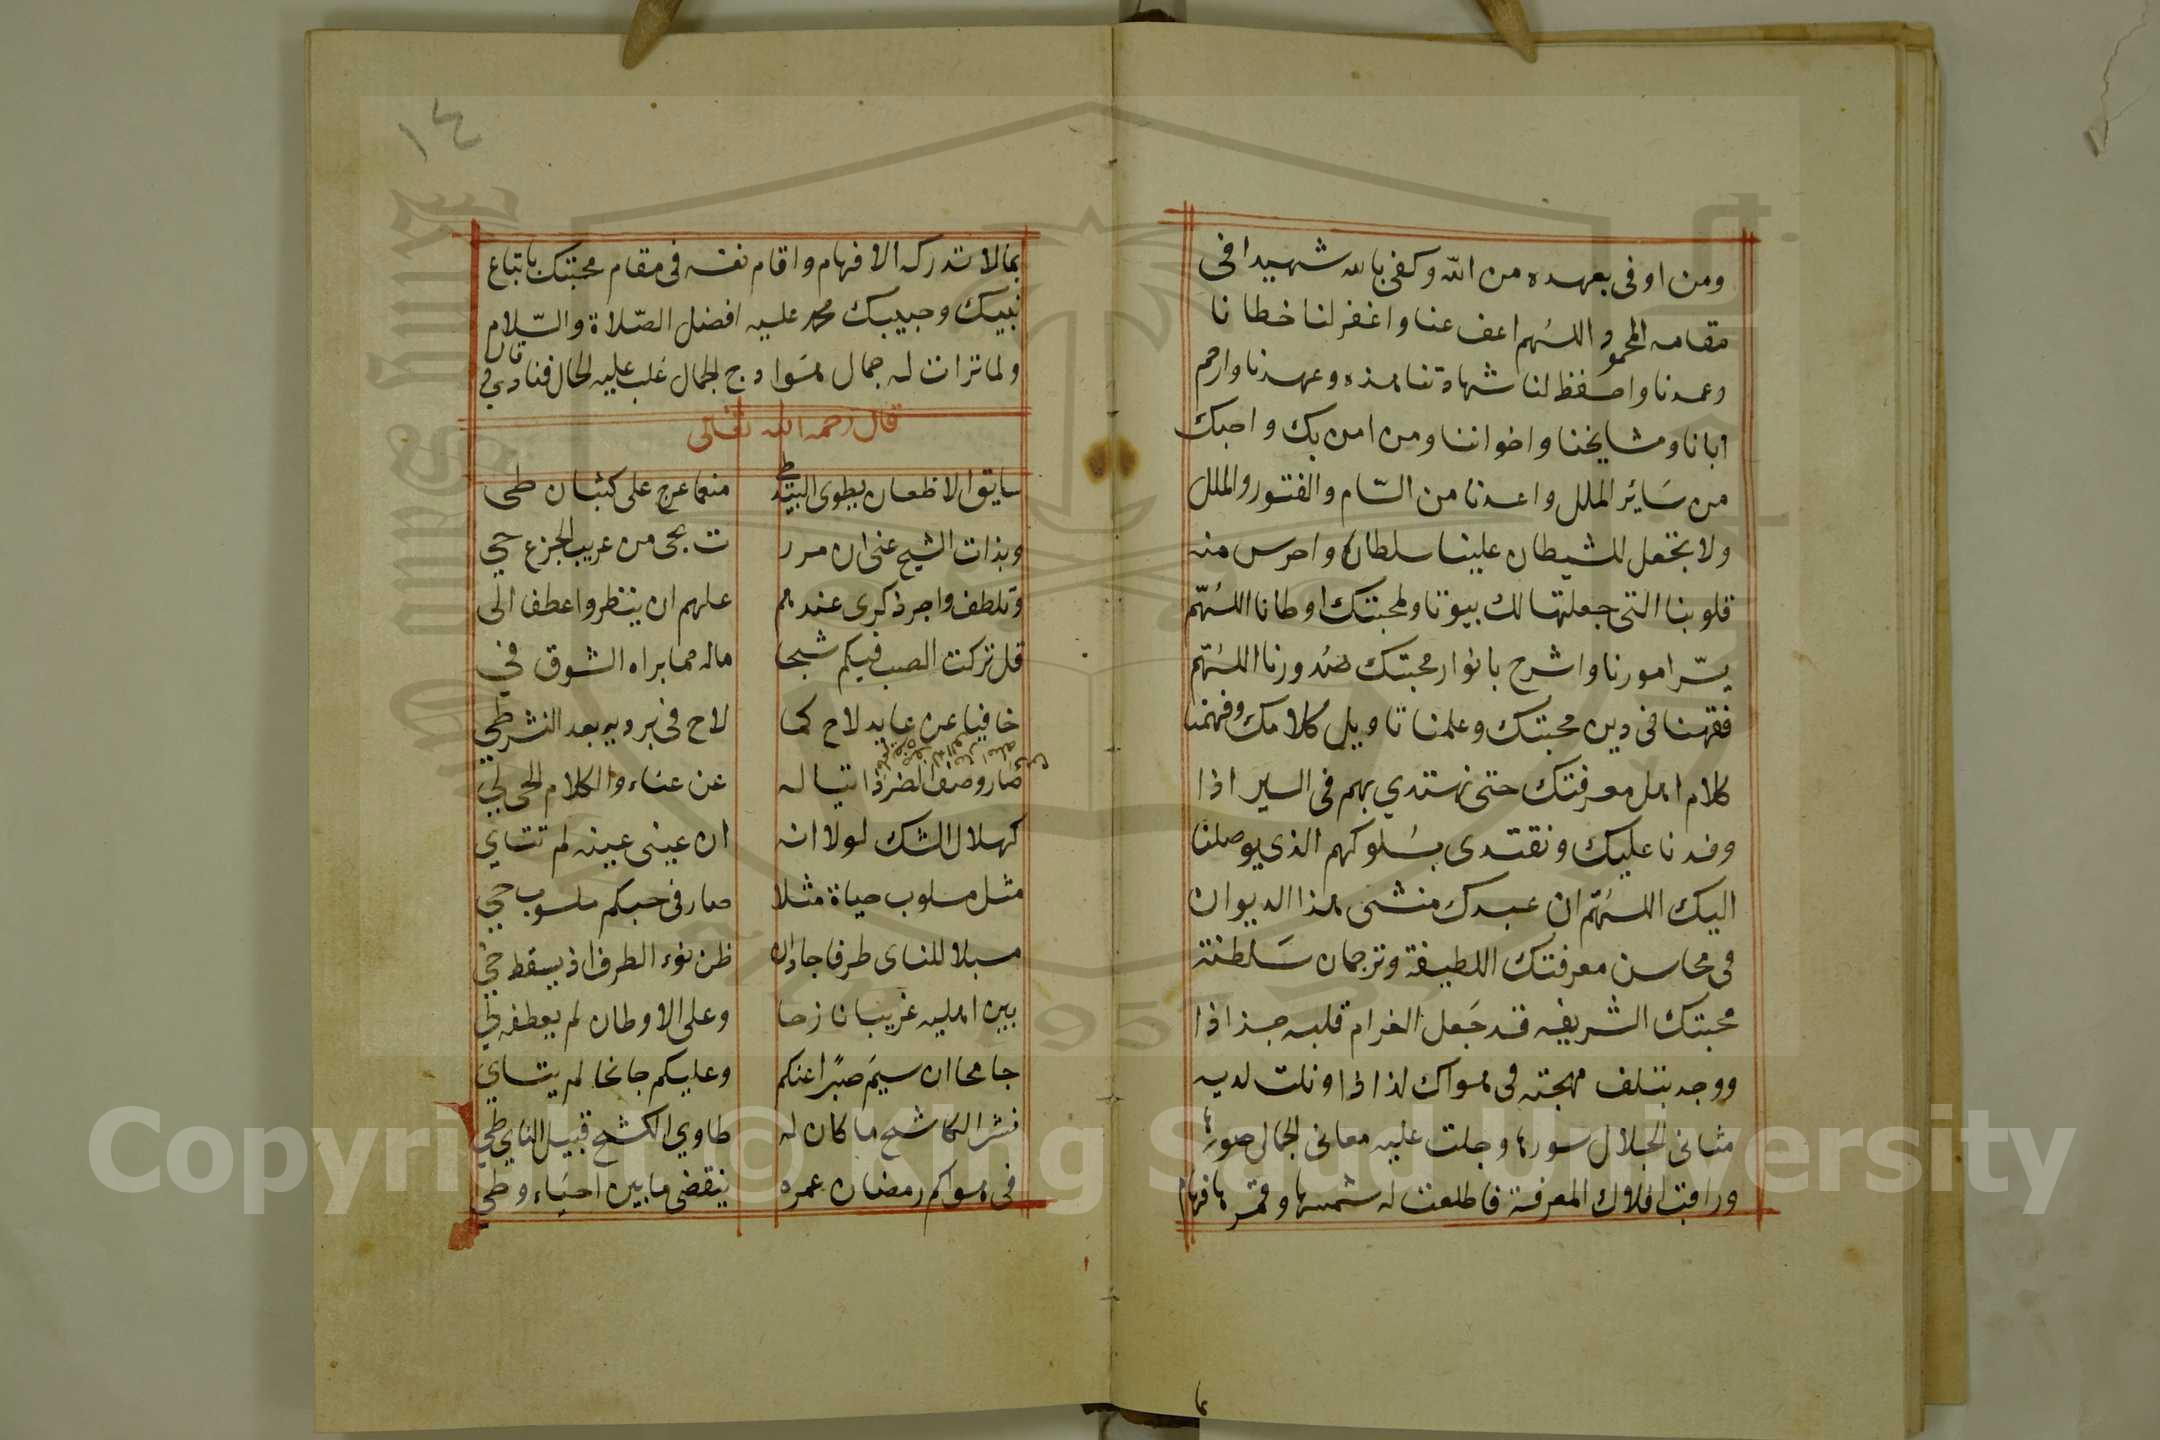 ومن اوفى بعهده من الله وكفى بالله شهيدا فى
مقامه المحمود اللهم اعف عنا واغفر لنا خطانا
وعمدنا واحفظ لنا شهادتنا هذه وعهدنا وارحم
ابانا ومشايخنا واخواننا ومن امن بك واحبك
من سائر الملل واعدنا من السام والفتور والملل
ولا تجعل للشيطان علينا سلطانا واحرس منه
قلوبنا التى جعلتها لك بيوتا ولمحبتك اوطانا اللهم
يسر امورنا واشرح بانوار محبتك صدورنا اللهم
فقهنا فى دين محبتك وعلمنا تاويل كلامك وفهمنا
كلام اهل معرفتك حتى نهتدي بهم فى السير اذا
وفدنا عليك ونقتدى بسلوكهم الذى يوصلنا
اليك اللهم ان عبدك منشى هذا الديوان
فى محاسن معرفتك اللطيفة وترجمان سلطنة
محبتك الشريفه قد جعل الغرام قلبه جذاذا
ووجد بتلف مهجته فى هواك لذاذا وتلت لديه
مثانى الجلال سورها وجلت عليه معانى الجمال صورها
وراقبت افلاك المعرفة فاطلعت له شمسها وقمرها فهام
بما
١٤
بما لا تدركه الافهام واقام نفسه فى مقام محبتك باتباع
نبيك وحبيبك محمد عليه افضل الصلاة والسلام
ولما تراات له جمال هوادج الجمال غلب عليه الحال فنادى فى
قال رحمه الله تعالى
سايق الاظعان يطوى البيد طى منعما عرج على كثبان طى
وبذات الشيح عنى ان مرر ت بحى من عريب الجزع حي
وتلطف واجر ذكرى عندهم علهم ان ينظروا عطفا الى
قل تركت الصب فيكم شبحا ماله مما براه الشوق في
خافيا عن عايد لاح كما لاح فى برديه بعد النشر طي
صار وصف الضر ذاتيا له عن عناء والكلام الحى لي
كهلال الشك لولا انه ان عينى عينه لم تتاي
مثل مسلوب حياة مثلا صار فى حبكم ملسوب حي
مسبلا للناى طرفا جاد ان ظن نوء الطرف اذ يسقط خي
بين اهليه غريبا نازحا وعلى الاوطان لم يعطفه لي
جامحا ان سيم صبرا عنكم وعليكم جانحا لم يتاي
نشر الكاشح ما كان له طاوي الكشح قبيل الناي طي
فى هواكم رمضان عمره ينقضى ما بين احياء وطي
Copyright © King Saud University
1957